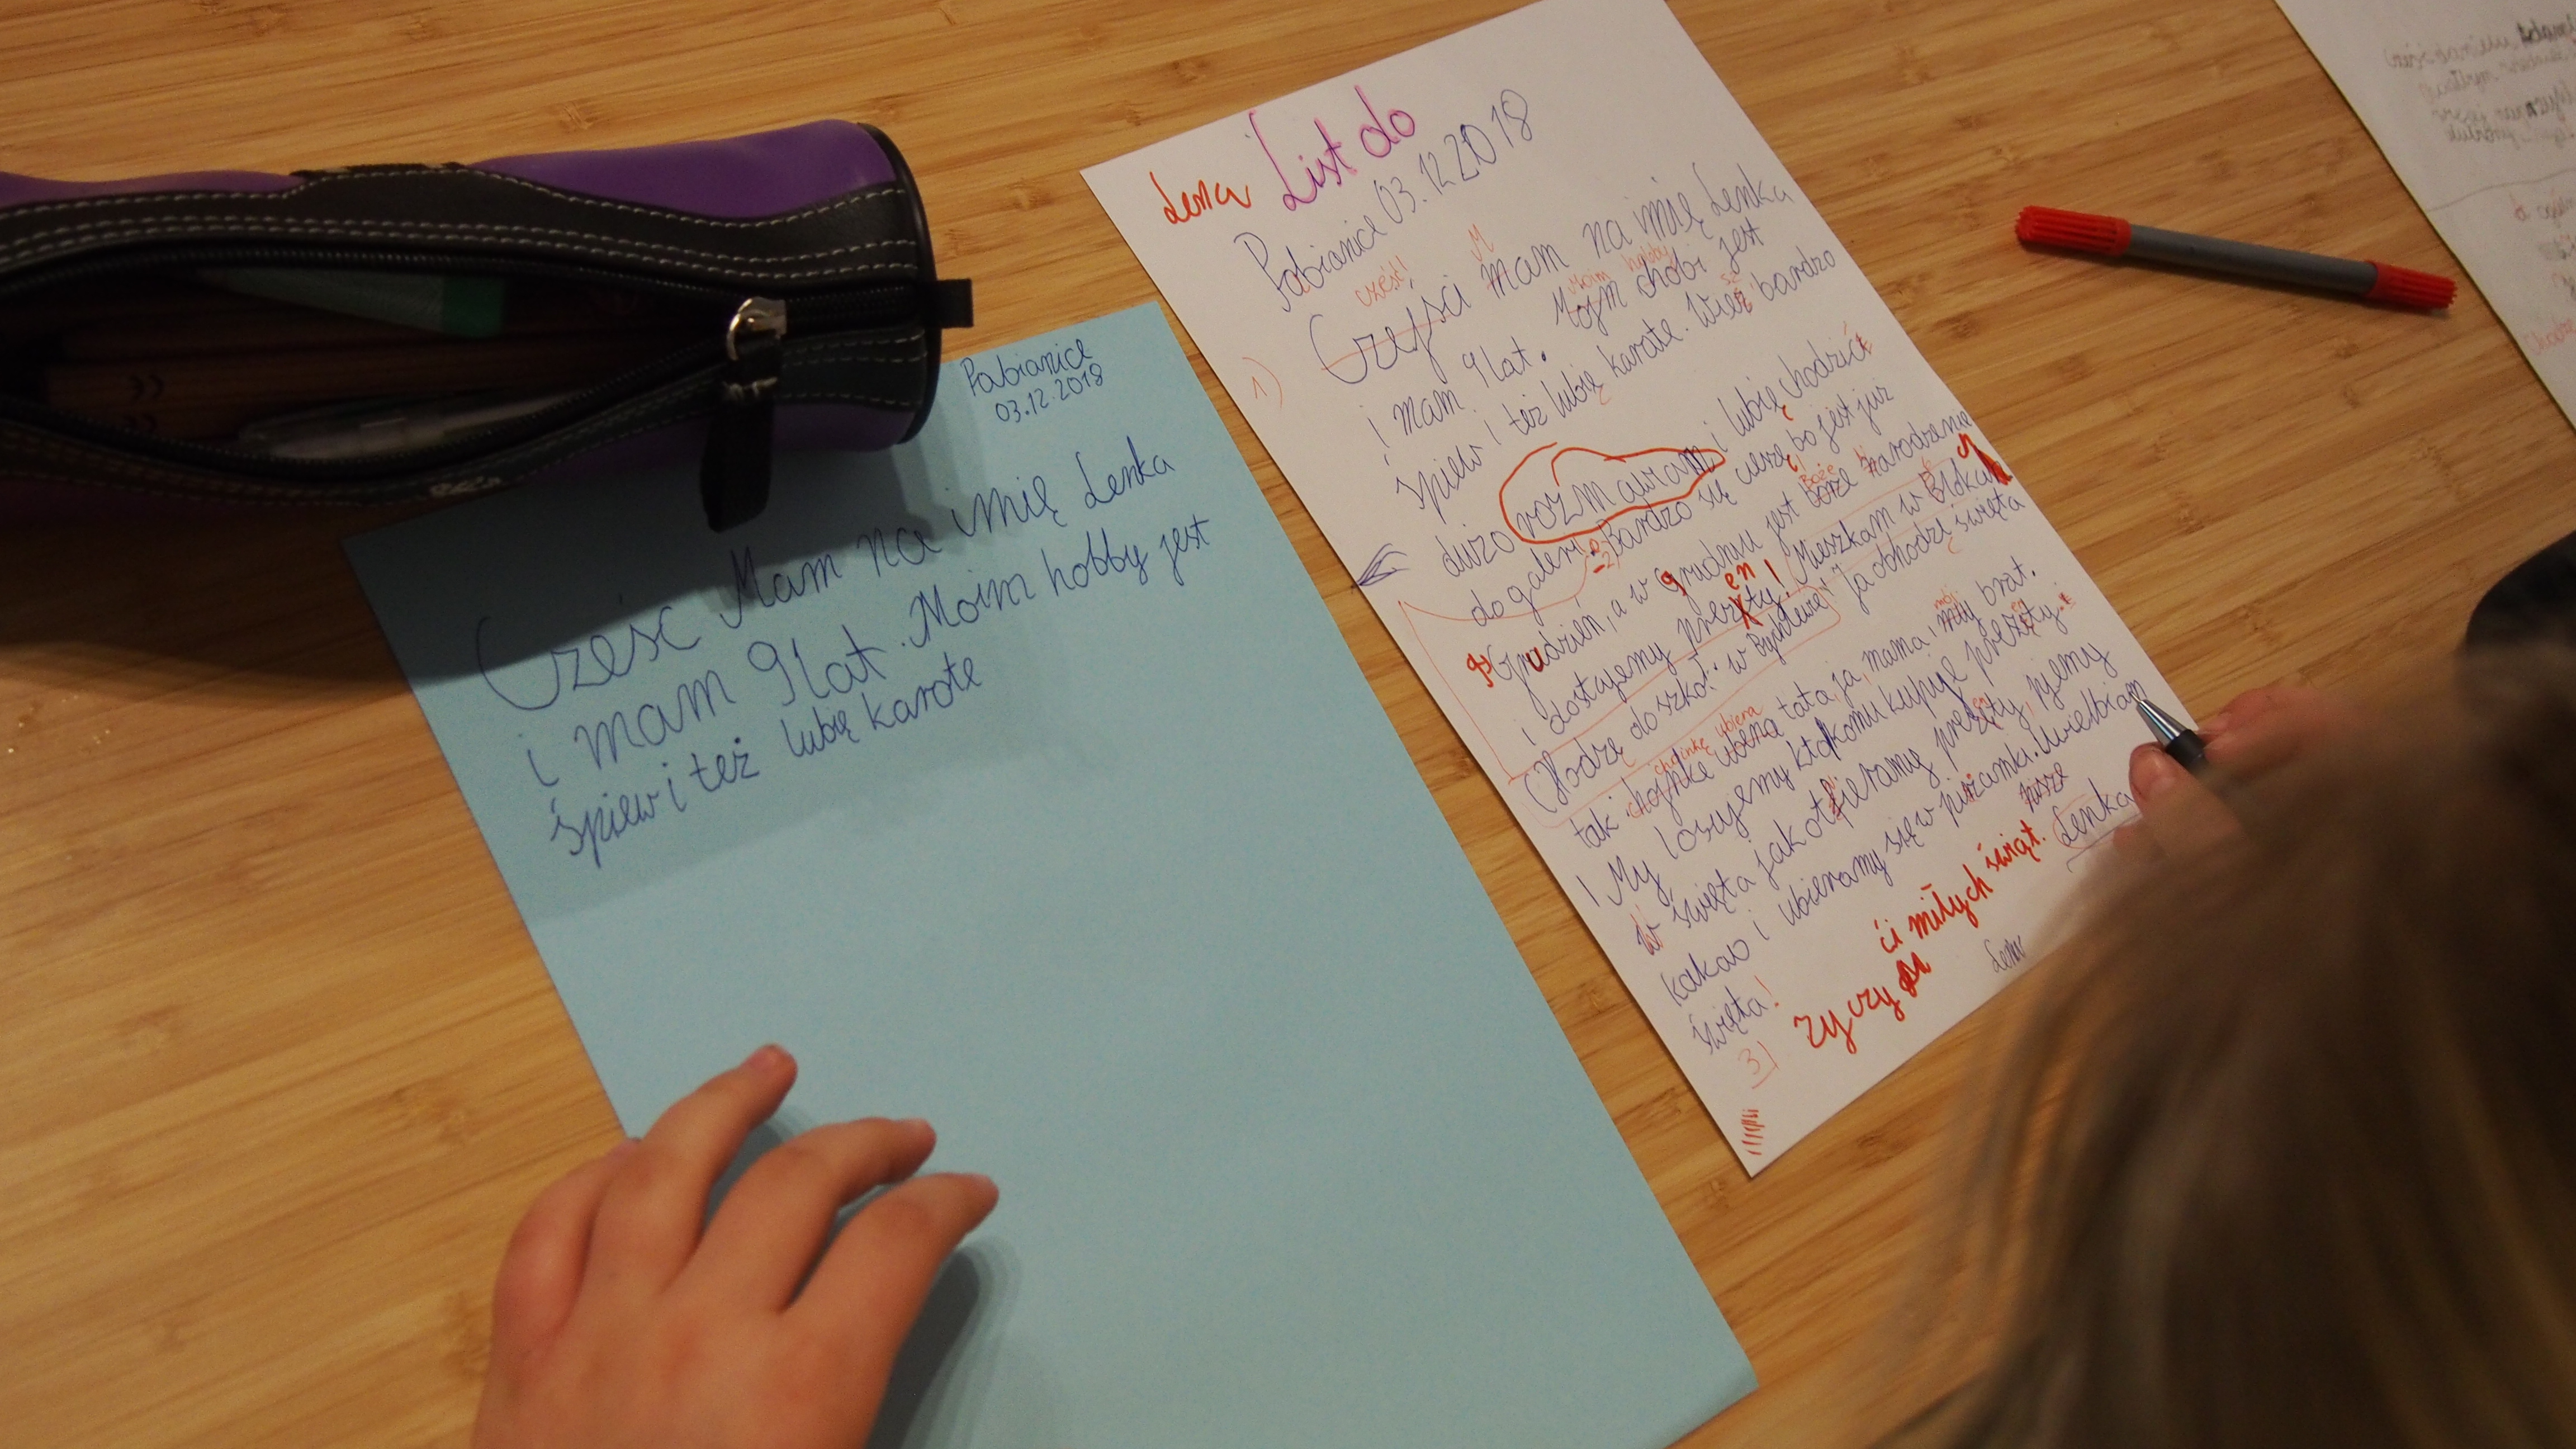 Pabianice
03.12.2018
Cześć Mam na imię Lenka
i mam 9 lat. Moim hobby jest
śpiew i też lubię karate
Lena List do
Pabianice 03.12 2018
cześć! M
Czejści mam na imię Lenka
Moim hobby
i mam 9 lat. Mojm chobi jest
śpiew i też lubię karate. Wież bardzo
dużo rozmawiam i lubię chodzić
do galeri. Bardzo się cieszę bo jest już
Boże
Grudzień, a w grudniu jest boże narodzenie
en
i dostajemy prezęty! Mieszkam w
Chodzę do szkoł. w Ja obhodzę święta
choinkę ubiera mój
tak. hojnkę ubiena tata ja, mama, mój brat.
en
i My losujemy kto komu kupuje prezęty.
en
W święta jak otfieramy prezęty, pijemy
kakao i ubieramy się w piżamki. Uwielbiam
święta! pisze
Lenka
3) życzy ci miłych świąt.
Lena
1)